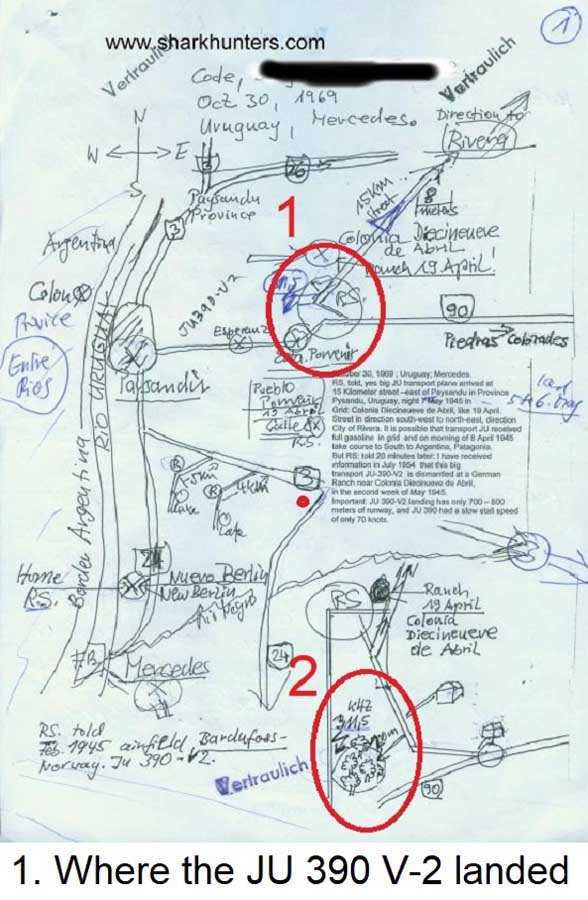 1
www.sharkhunters.com
Vertraulich
Vertraulich
Code,
Oct 30, 1969
Uruguay, Mercedes.
Direction to
Rivera
N
W E
S
3
26
15KM
street
8
meters
Paysandu
Province
3
1
Colonia Diecineueve
de Abril
Ranch 19. April!
Argentina
Colon
Province
Entre
Rios
RIO URUGUAY
JU390-V-2
R.S.
90
Esperanz
Porvenir
Piedras Colorades
Paysandú
Pueblo
Porvenir
19 Abril
Calle
R.S.
30, 1969 ; Uruguay; Mercedes.
RS. told, yes big JU transport plane arrived at
15 Kilometer street –east of Paysandu in Province
Pysandu, Uruguay, night 7 May 1945 in
Grid: Colonia Diecineueve de Abril, like 19 April.
Street in direction south-west to north-east, direction
City of Rivera. It is possible that transport JU received
full gasoline in grid and on morning of 8 April 1945
take course to South to Argentina, Patagonia.
But RS: told 20 minutes later: I have received
information in July 1954 that this big
transport JU-390-V2 is dismantled at a German
Ranch near Colonia Diecineueve de Abril,
in the second week of May 1945.
Important: JU 390-V2 landing has only 700 – 800
meters of runway, and JU 390 had a slow stall speed
of only 70 knots.
R
R
4km
Lake
Lake
3
3
24
Home
RS.
Border Argentina
Nuevo Berlin
New Berlin
Rio Negro
Mercedes
24
RS
N
Ranch
19 April
Colonia
Diecineueve
de Abril
2
311,5
90
RS. told
Feb. 1945 airfield Bardufoss-
Norway. Ju 390-V2.
Vertraulich
1. Where the JU 390 V-2 landed